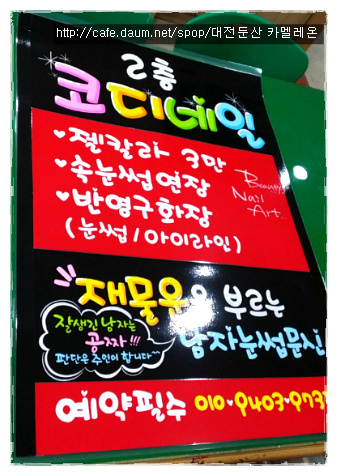 http://cafe.daum.net/spop/대전둔산 카멜레온
2층
코디네일
♥젤칼라 3만
♥속눈썹연장
♥반영구화장
(눈썹/아이라인)
Beauty
Nail
Art.
재물운을 부르는
남자눈썹문신
잘생긴 남자는
공짜!!!
판단은 주인이 합니다~
예약필수 010·9403·973